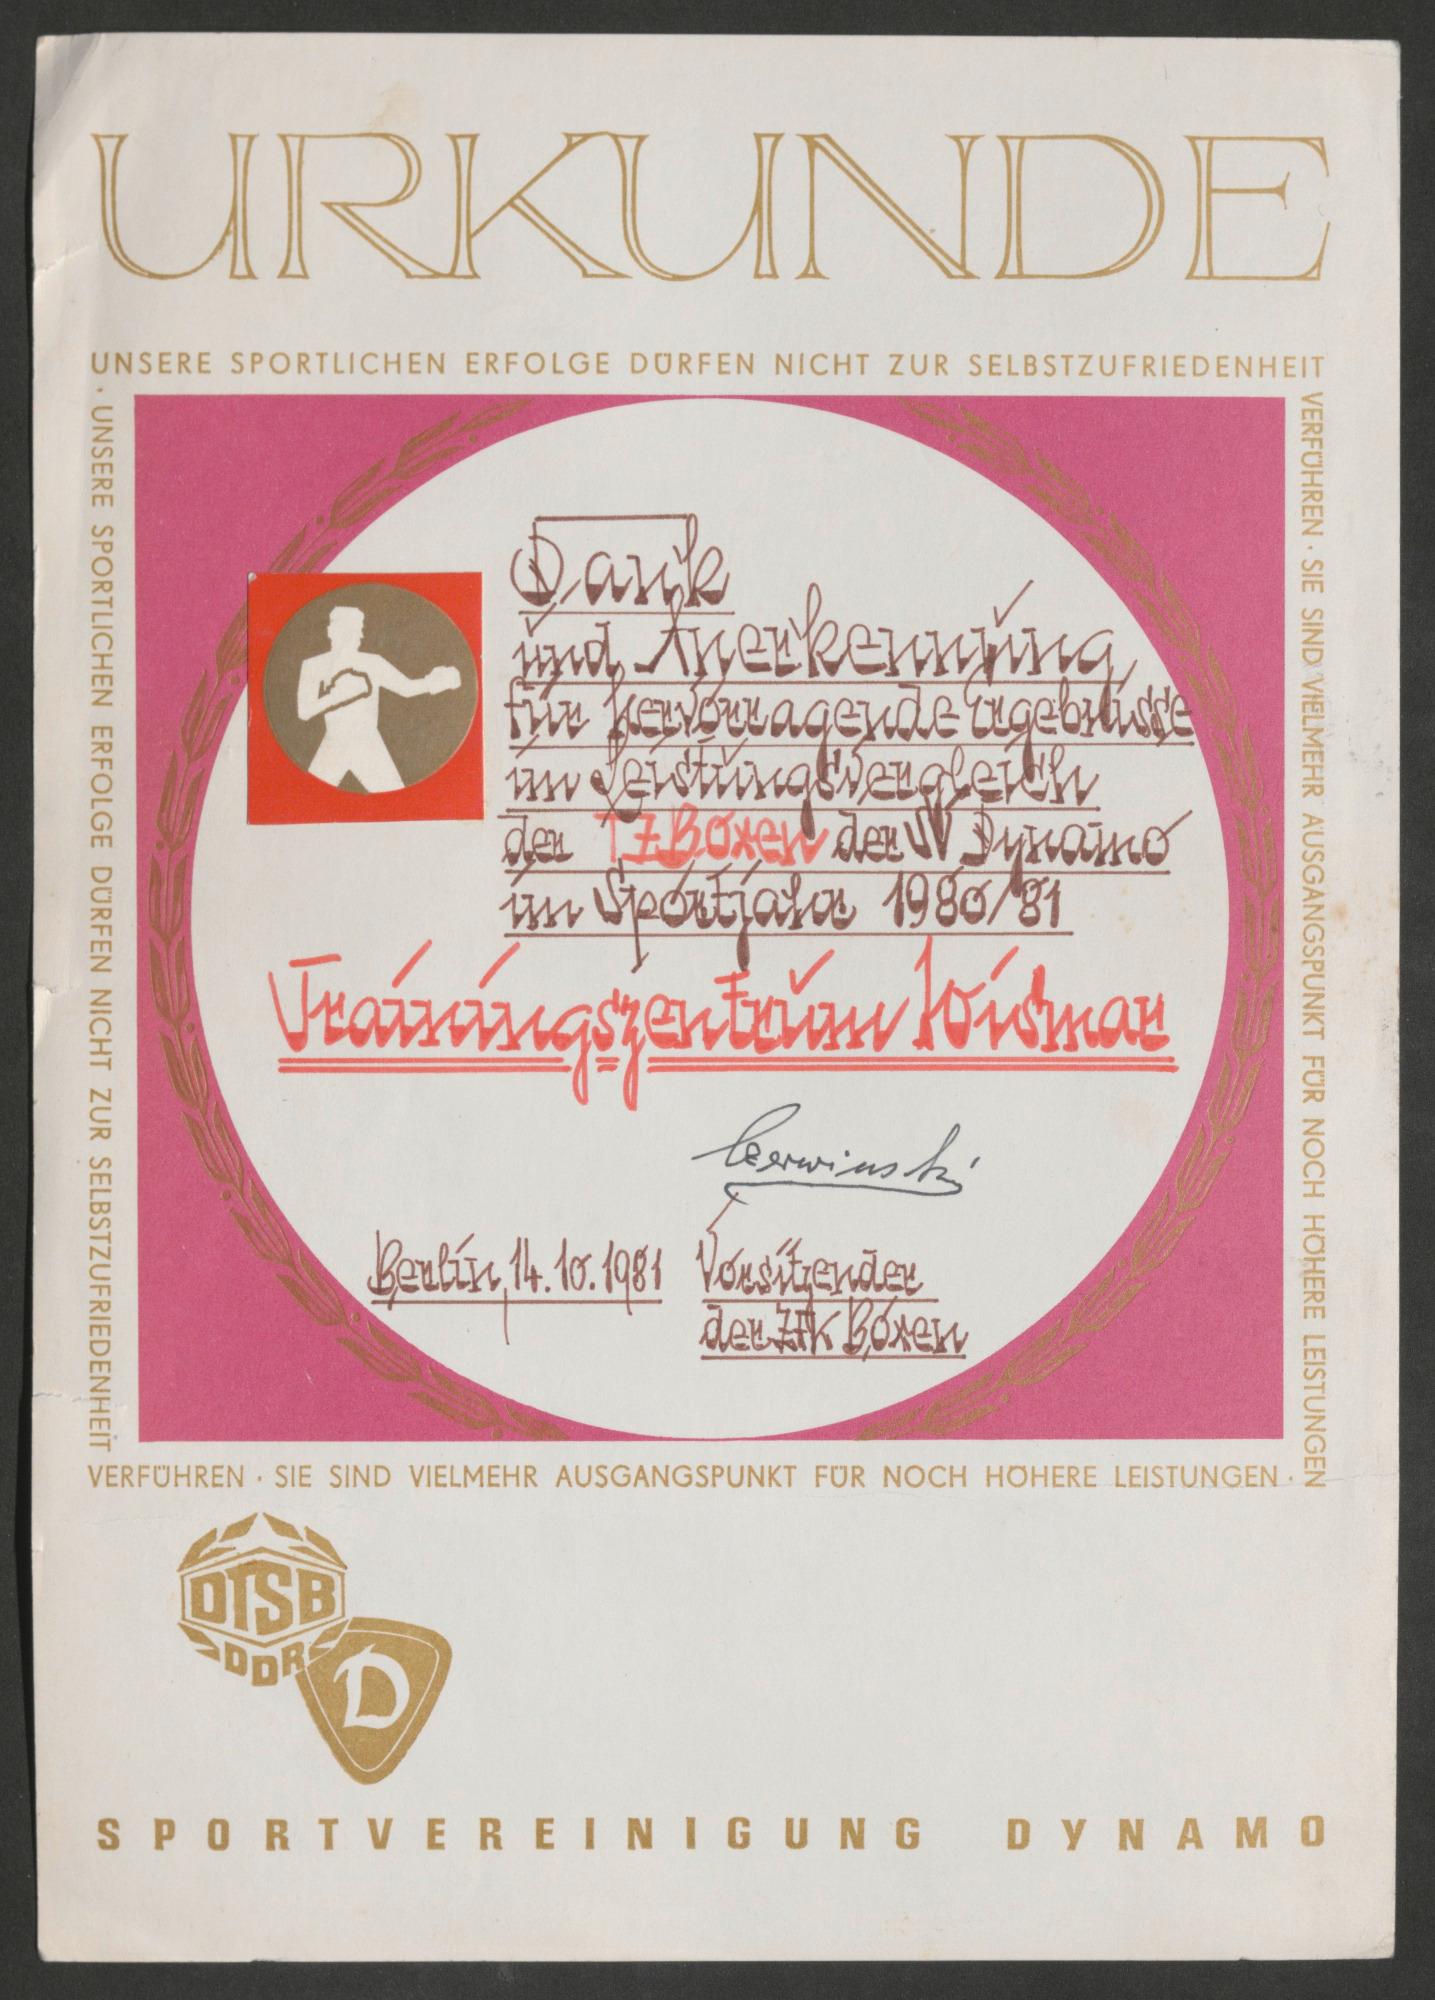 URKUNDE
UNSERE SPORTLICHEN ERFOLGE DÜRFEN NICHT ZUR SELBSTZUFRIEDENHEIT
VERFÜHREN · SIE SIND VIELMEHR AUSGANGSPUNKT FÜR NOCH HÖHERE LEISTUNGEN
· UNSERE SPORTLICHEN ERFOLGE DÜRFEN NICHT ZUR SELBSTZUFRIEDENHEIT
Dank
und Anerkennung
für hervorragende Ergebnisse
im Leistungsvergleich
der TZ Boxen der SV Dynamo
im Sportjahr 1980/81
Trainingszentrum Wismar
Czerwinski
Berlin, 14.10.1981
Vorsitzender
der ZFK Boxen
VERFÜHREN · SIE SIND VIELMEHR AUSGANGSPUNKT FÜR NOCH HÖHERE LEISTUNGEN ·
DTSB
DDR
D
SPORTVEREINIGUNG DYNAMO